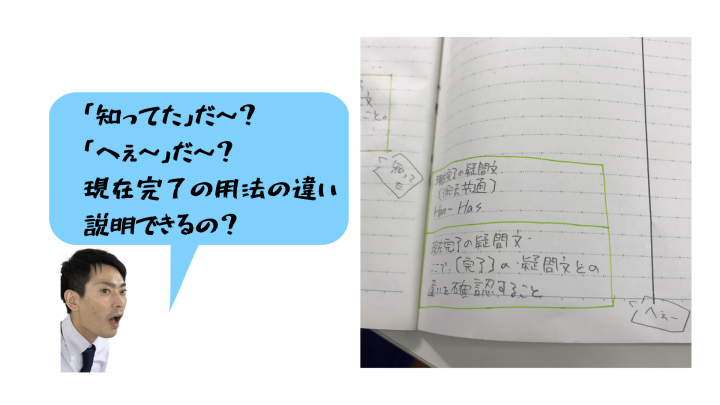 「知ってた」だ〜？
「へぇ〜」だ〜？
現在完了の用法の違い
説明できるの？
文
こと。
知って
た
現在完了の疑問文
Have－Has
現在完了の疑問文.
ここで、[完了]の・疑問文との
違いを確認すること
へぇー